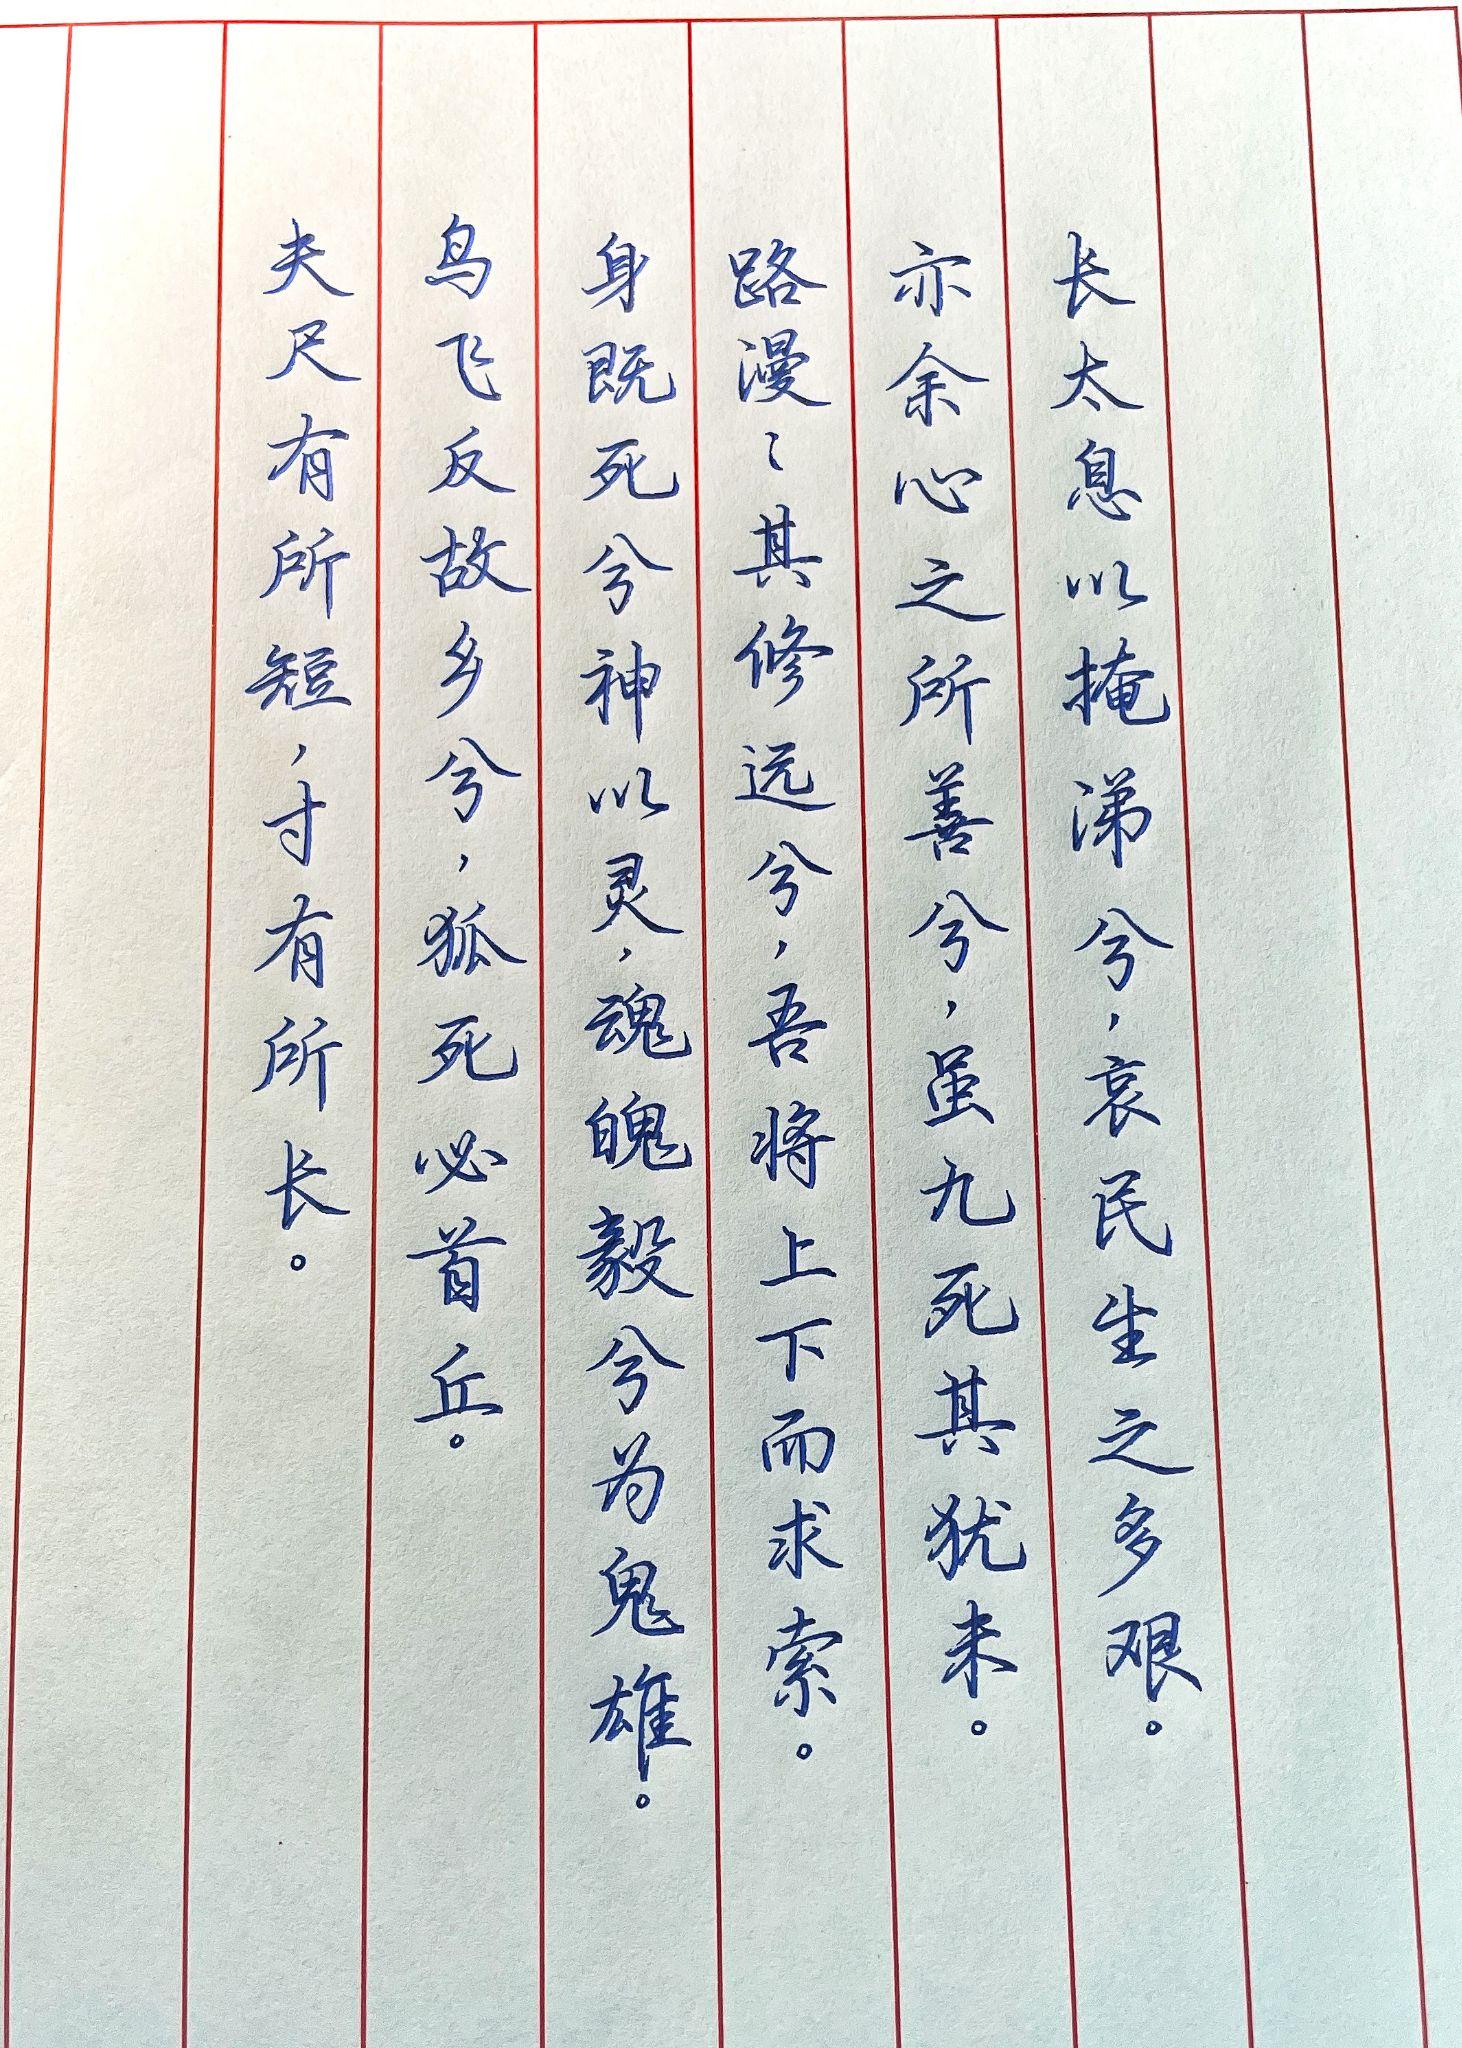 长太息以掩涕兮,哀民生之多艰。
亦余心之所善兮,虽九死其犹未。
路漫〻其修远兮,吾将上下而求索。
身既死兮神以灵,魂魄毅兮为鬼雄。
鸟飞反故乡兮,狐死必首丘。
夫尺有所短,寸有所长。